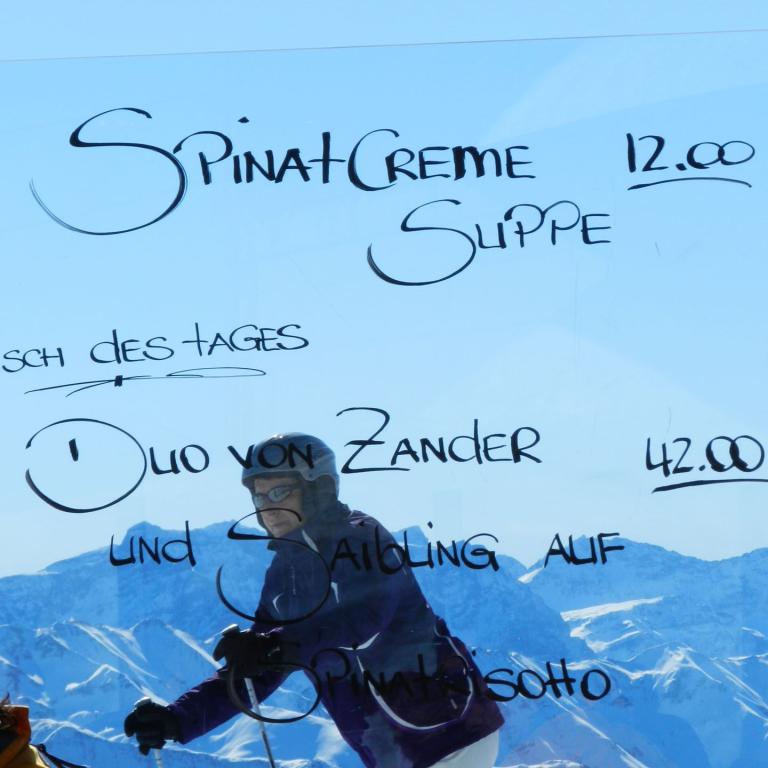 SPINATCREME 12.00
SUPPE
SCH DES TAGES
DUO VON ZANDER 42.00
UND SAIBLING AUF
SPINATRISOTTO